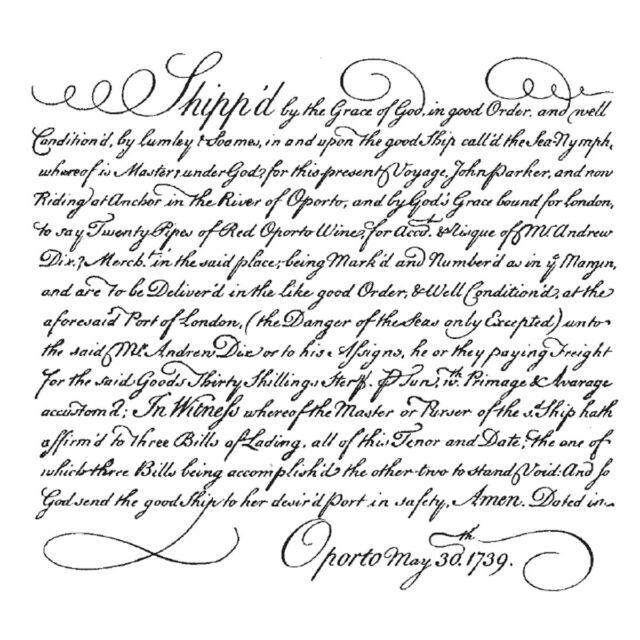 Shipp'd by the Grace of God, in good Order, and well
Condition'd, by Lumley & Soames, in and upon the good Ship call'd the Sea-Nymph,
whereof is Master, under God, for this present Voyage, John Parker, and now
Riding at Anchor in the River of Oporto, and by God's Grace bound for London,
to say Twenty Pipes of Red Oporto Wine, for Acct. & Risque of Mr. Andrew
Dix, Mercht. in the said place; being Mark'd and Number'd as in ye Margin,
and are to be Deliver'd in the like good Order, & Well Condition'd, at the
aforesaid Port of London, (the Danger of the Seas only Excepted) unto
the said Mr. Andrew Dix or to his Assigns, he or they paying Freight
for the said Goods Thirty Shillings Sterg. P Tun, wth. Primage & Avarage
accustom'd; In Witness whereof the Master or Purser of the sd. Ship hath
affirm'd to three Bills of Lading, all of this Tenor and Date; the one of
which three Bills being accomplish'd the other two to stand Void. And so
God send the good Ship to her desir'd Port in safety, Amen. Dated in
Oporto May 30th. 1739.